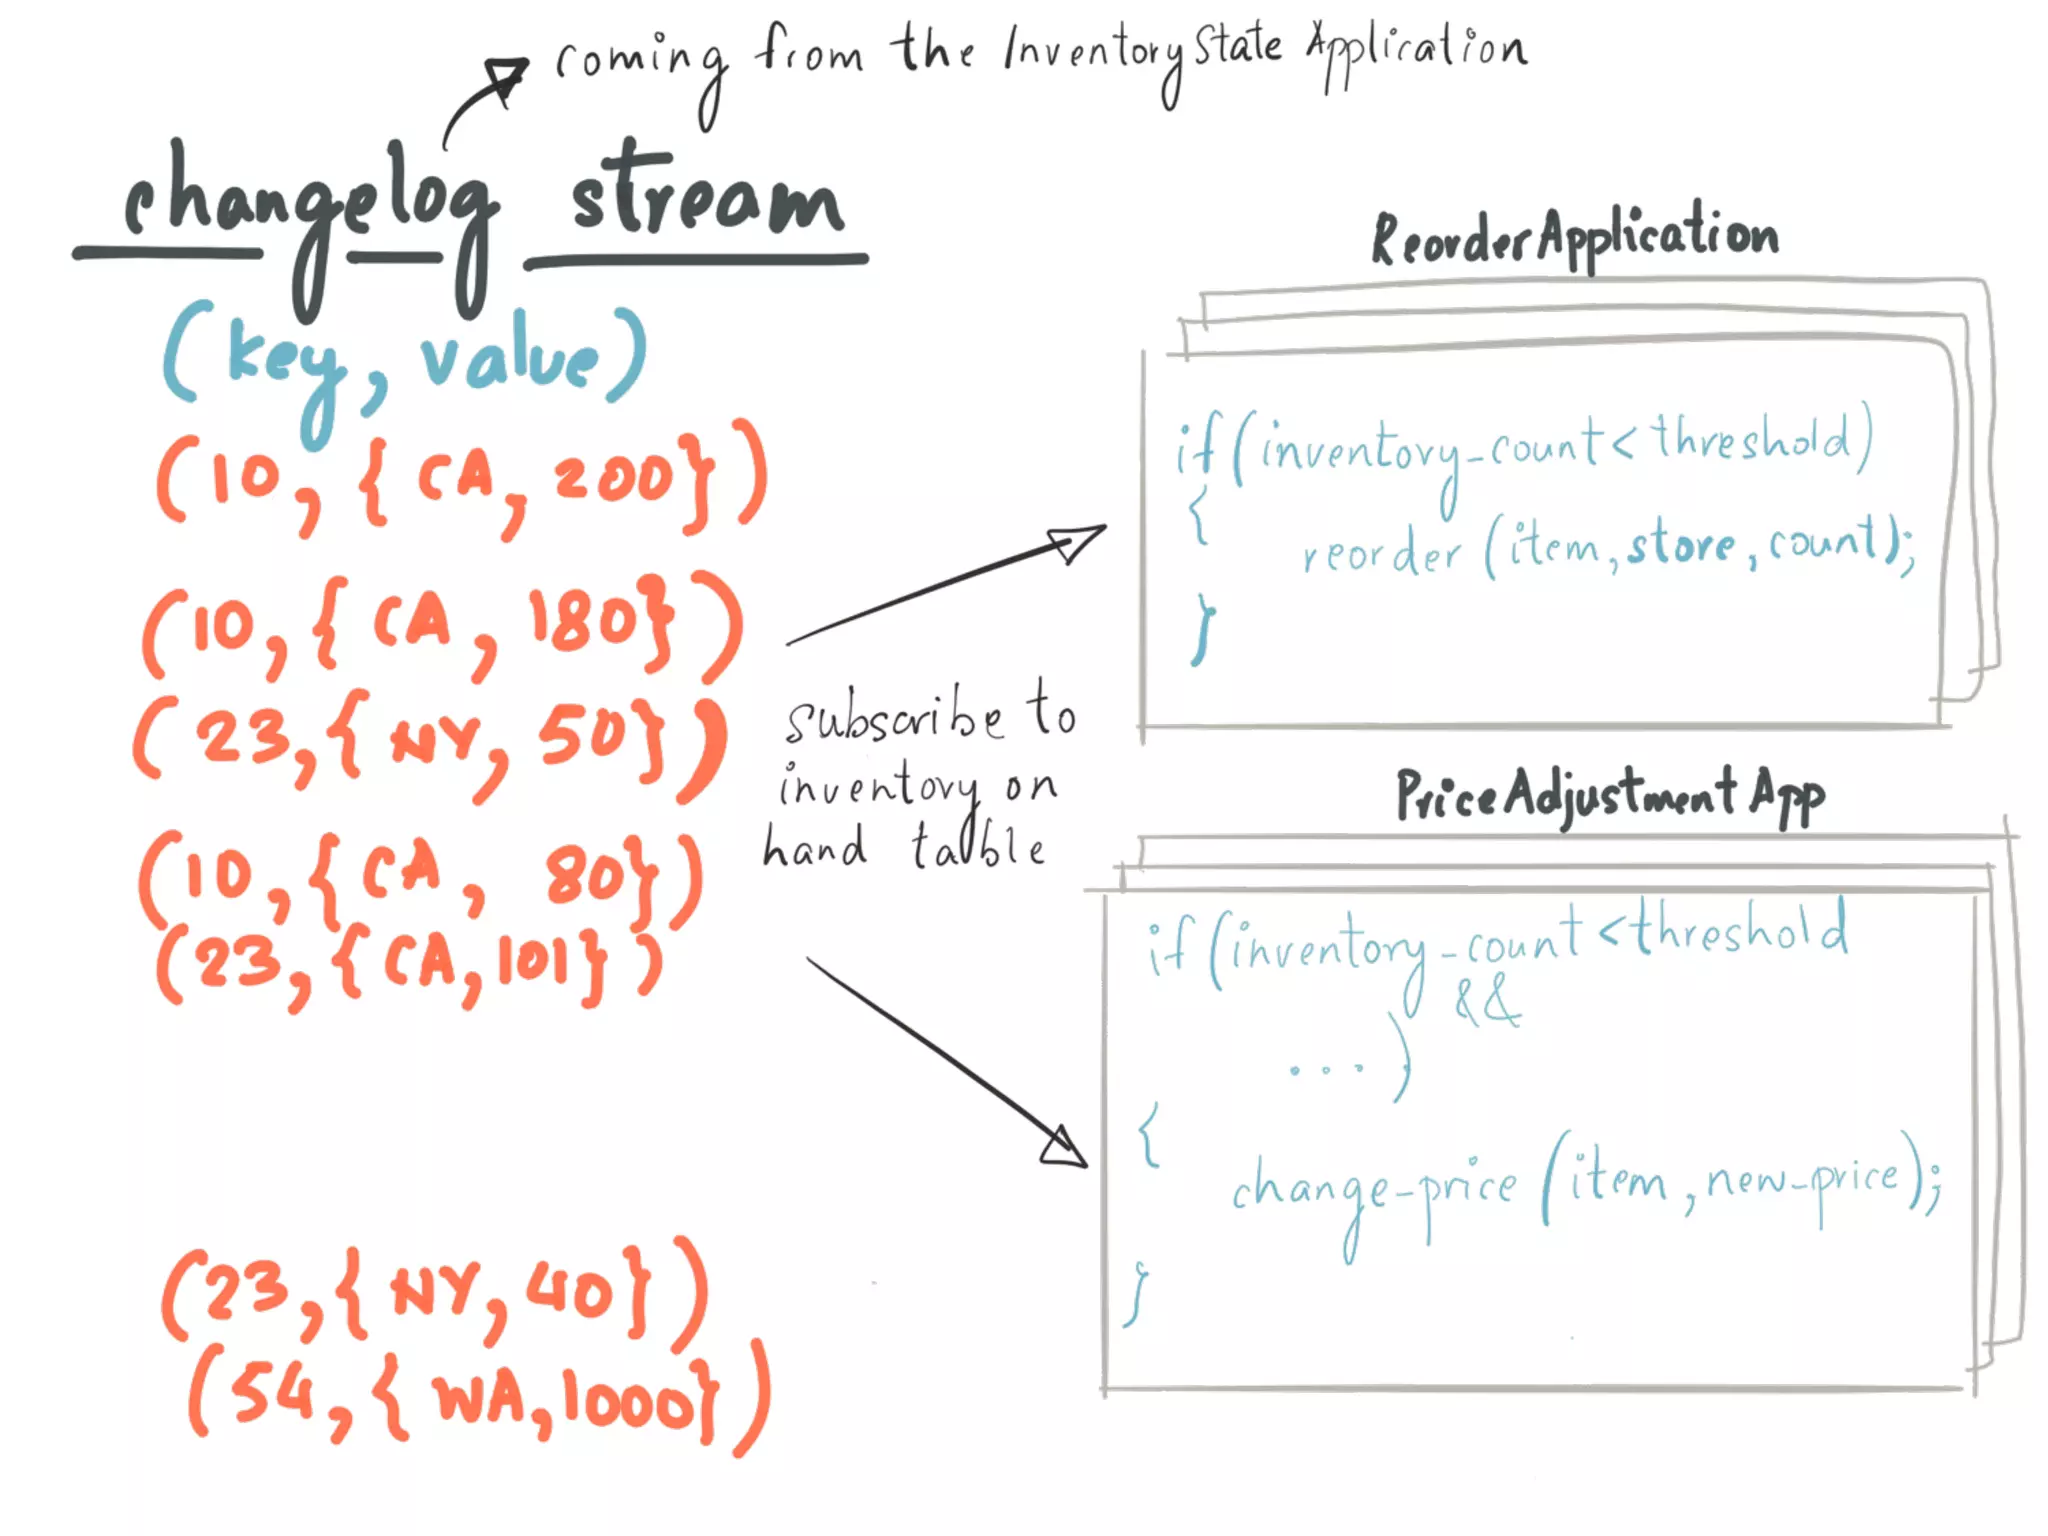 coming from the InventoryState Application
changelog stream
(key, value)
(10, { CA, 200})
(10, { CA, 180})
(23, { NY, 50})
(10, { CA, 80})
(23, { CA, 101})
(23, { NY, 40})
(54, { WA, 1000})
subscribe to
inventory on
hand table
ReorderApplication
if (inventory_count < threshold)
{
reorder (item, store, count);
}
PriceAdjustment App
if (inventory_count < threshold
&&
... )
{
change_price (item, new_price);
}